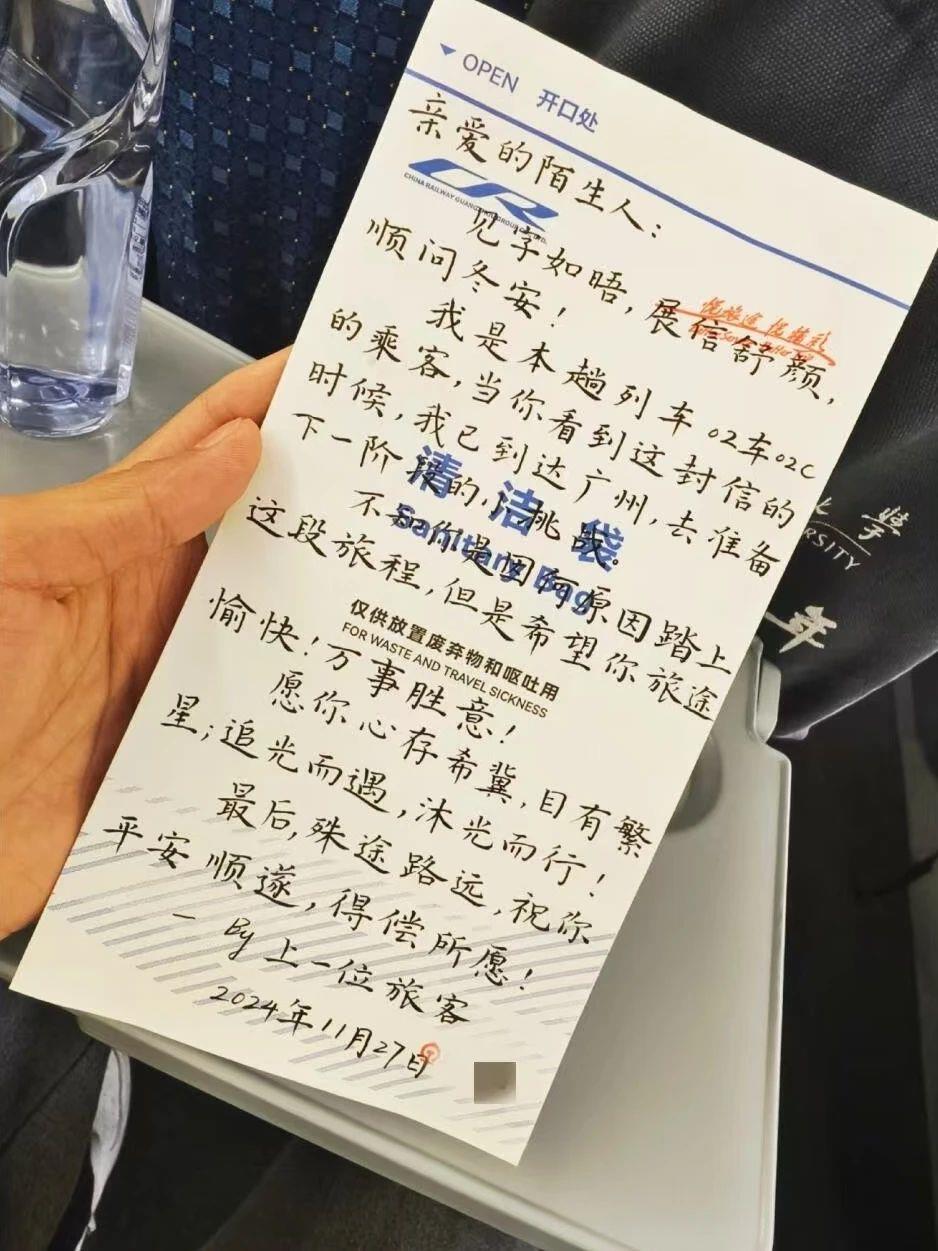 OPEN 开口处
亲爱的陌生人：
CHINA RAILWAY GUANGZHOU GROUP CO., LTD.
见字如晤，展信舒颜，
顺问冬安！
我是本趟列车02车02C
的乘客，当你看到这封信的
时候，我已到达广州，去准备
下一阶段的小挑战。
清洁袋
Sanitary Bag
不知你是因何原因踏上
这段旅程，但是希望你旅途
愉快！万事胜意！
仅供放置废弃物和呕吐用
FOR WASTE AND TRAVEL SICKNESS
愿你心存希冀，目有繁
星；追光而遇，沐光而行！
最后，殊途路远，祝你
平安顺遂，得偿所愿！
— By 上一位旅客
2024年11月27日
ERSITY